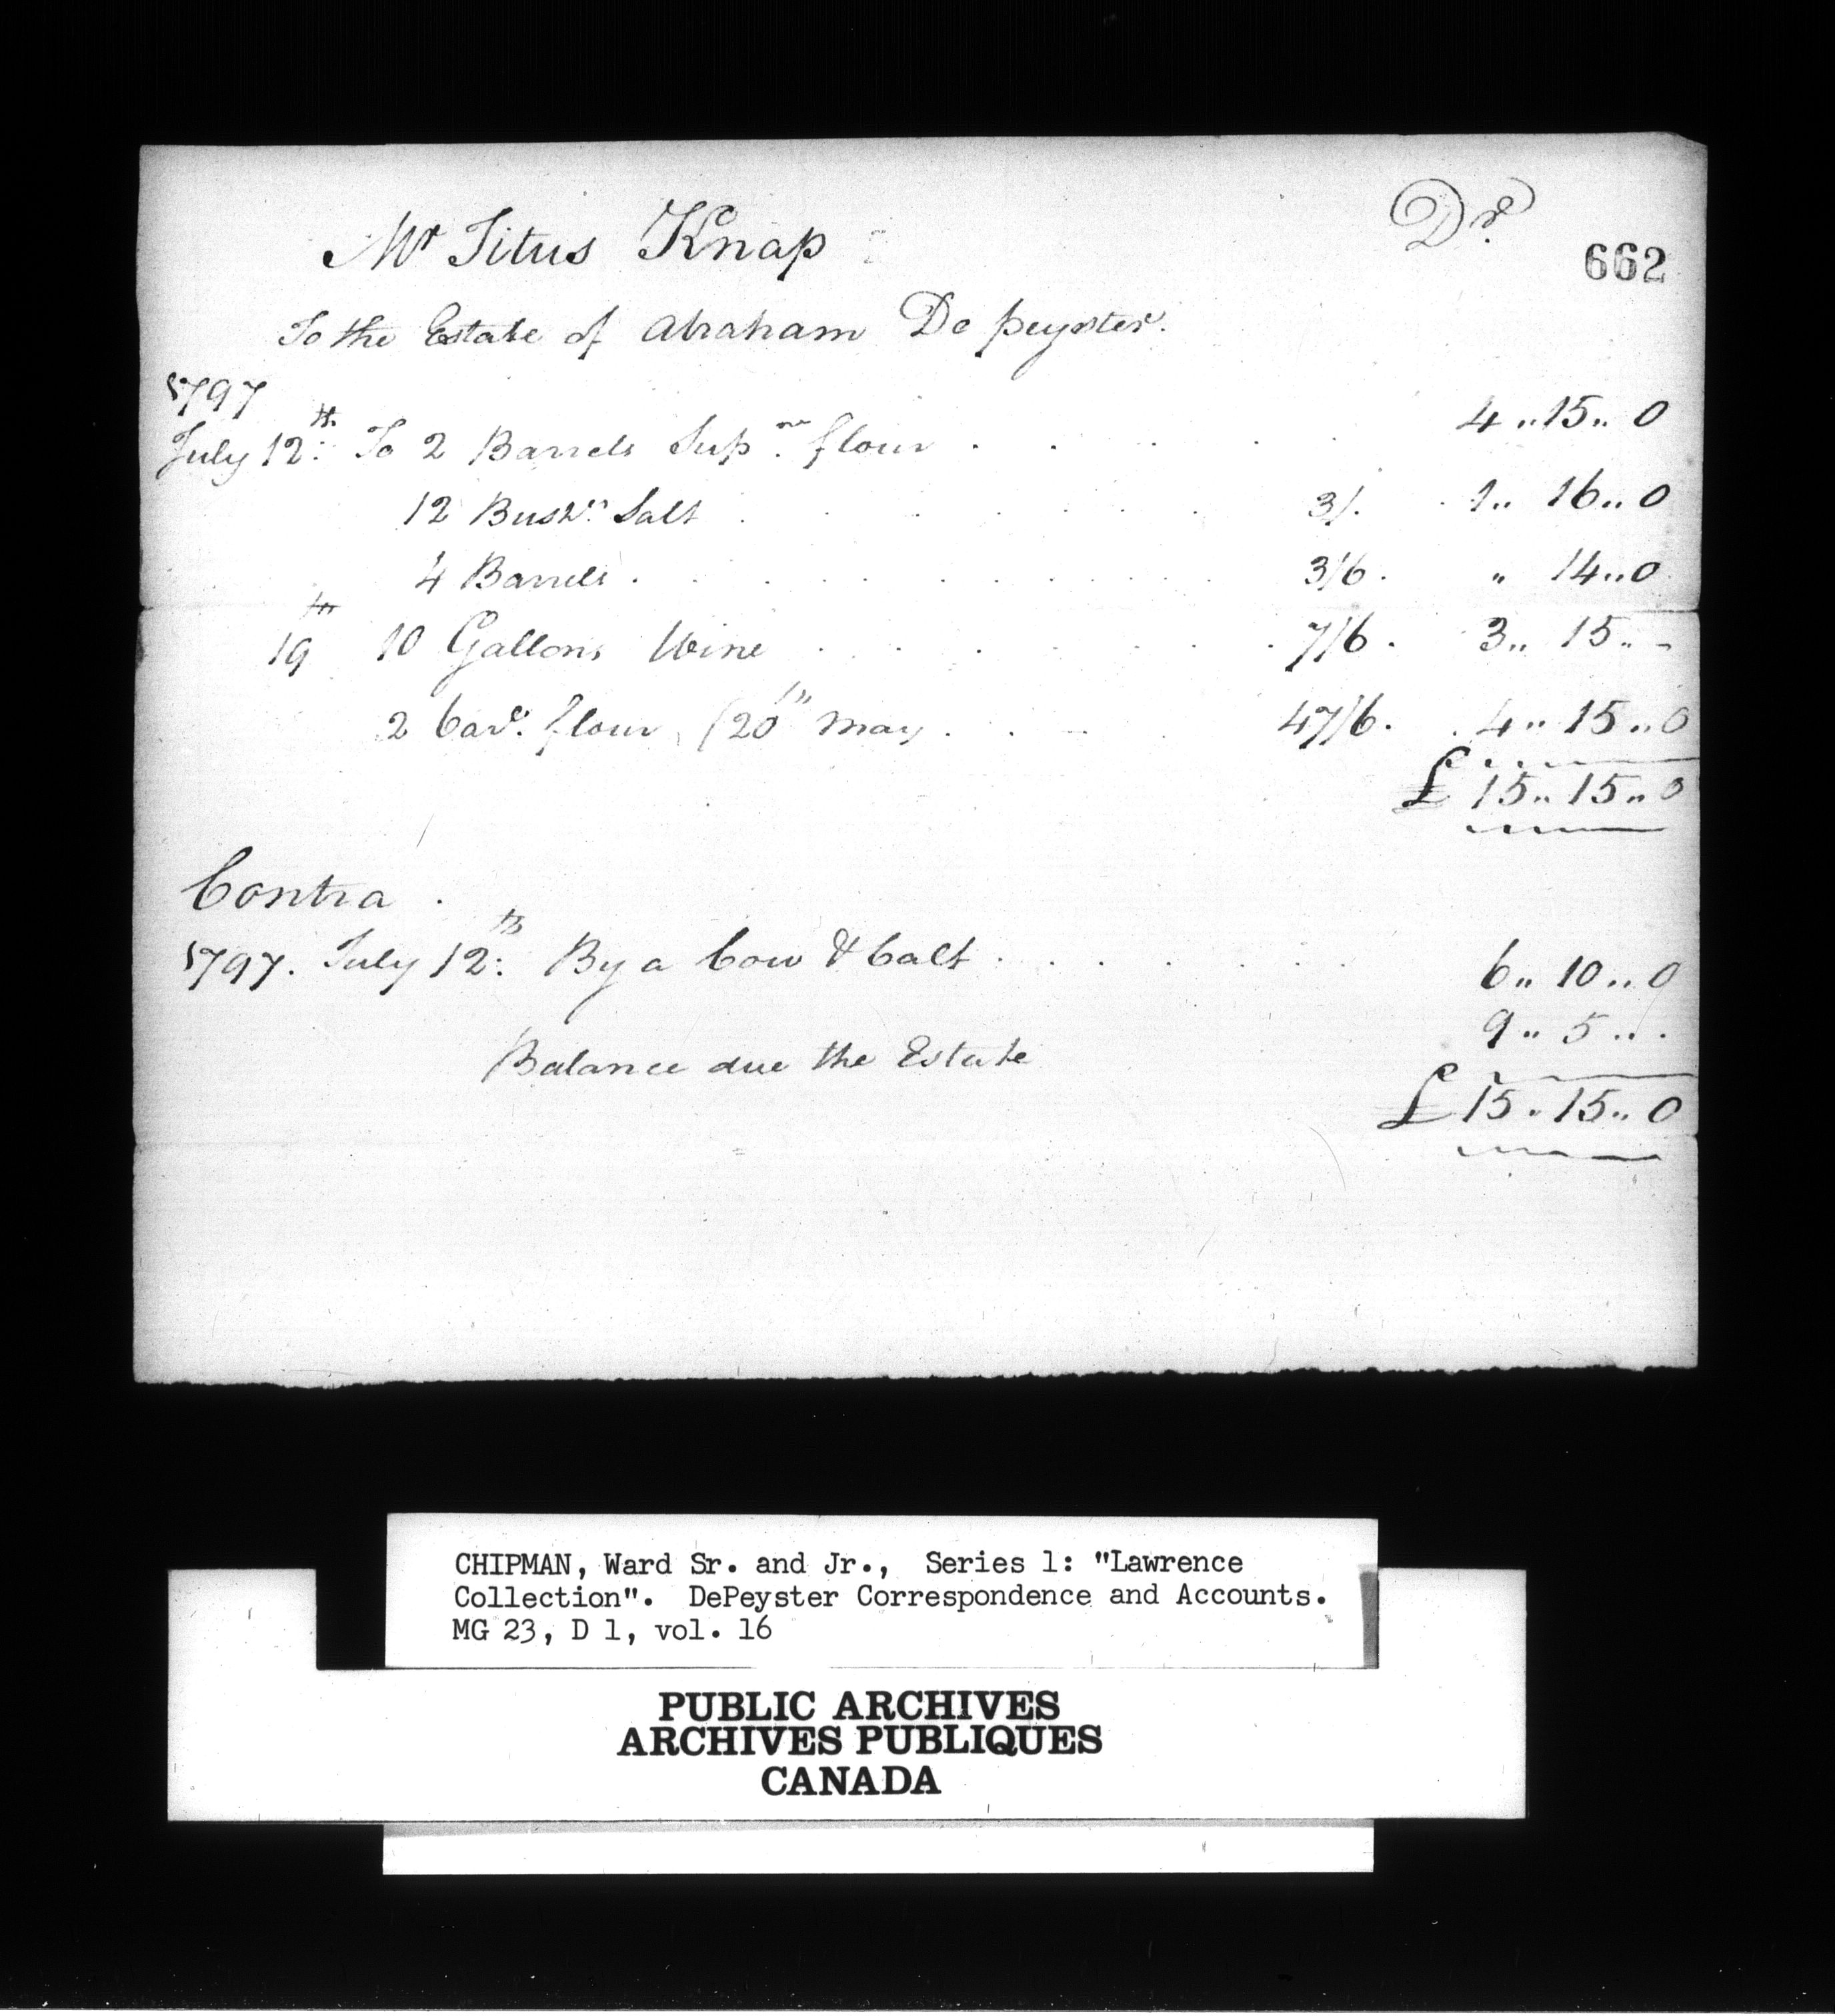 Mr Titus Knap Dr.
662
To the Estate of Abraham De peyster.
1797
July 12th: To 2 Barrels Supne. flour . . . . . 4 ,, 15 ,, 0
12 Bushls. Salt . . . . . . 3/. 1 ,, 16 ,, 0
4 Barrels . . . . . . . . 3/6. ,, 14 ,, 0
19th 10 Gallons Wine . . . . . . 7/6. 3 ,, 15 ,, -
2 barls. flour (20th May . . . . 47/6. 4 ,, 15 ,, 0
£ 15 ,, 15 ,, 0
Contra .
1797. July 12th: By a Cow & Calf . . . . . . . 6 ,, 10 ,, 0
Balance due the Estate 9 ,, 5 ,, .
£ 15 ,, 15 ,, 0
CHIPMAN, Ward Sr. and Jr., Series 1: "Lawrence
Collection". DePeyster Correspondence and Accounts.
MG 23, D 1, vol. 16
PUBLIC ARCHIVES
ARCHIVES PUBLIQUES
CANADA